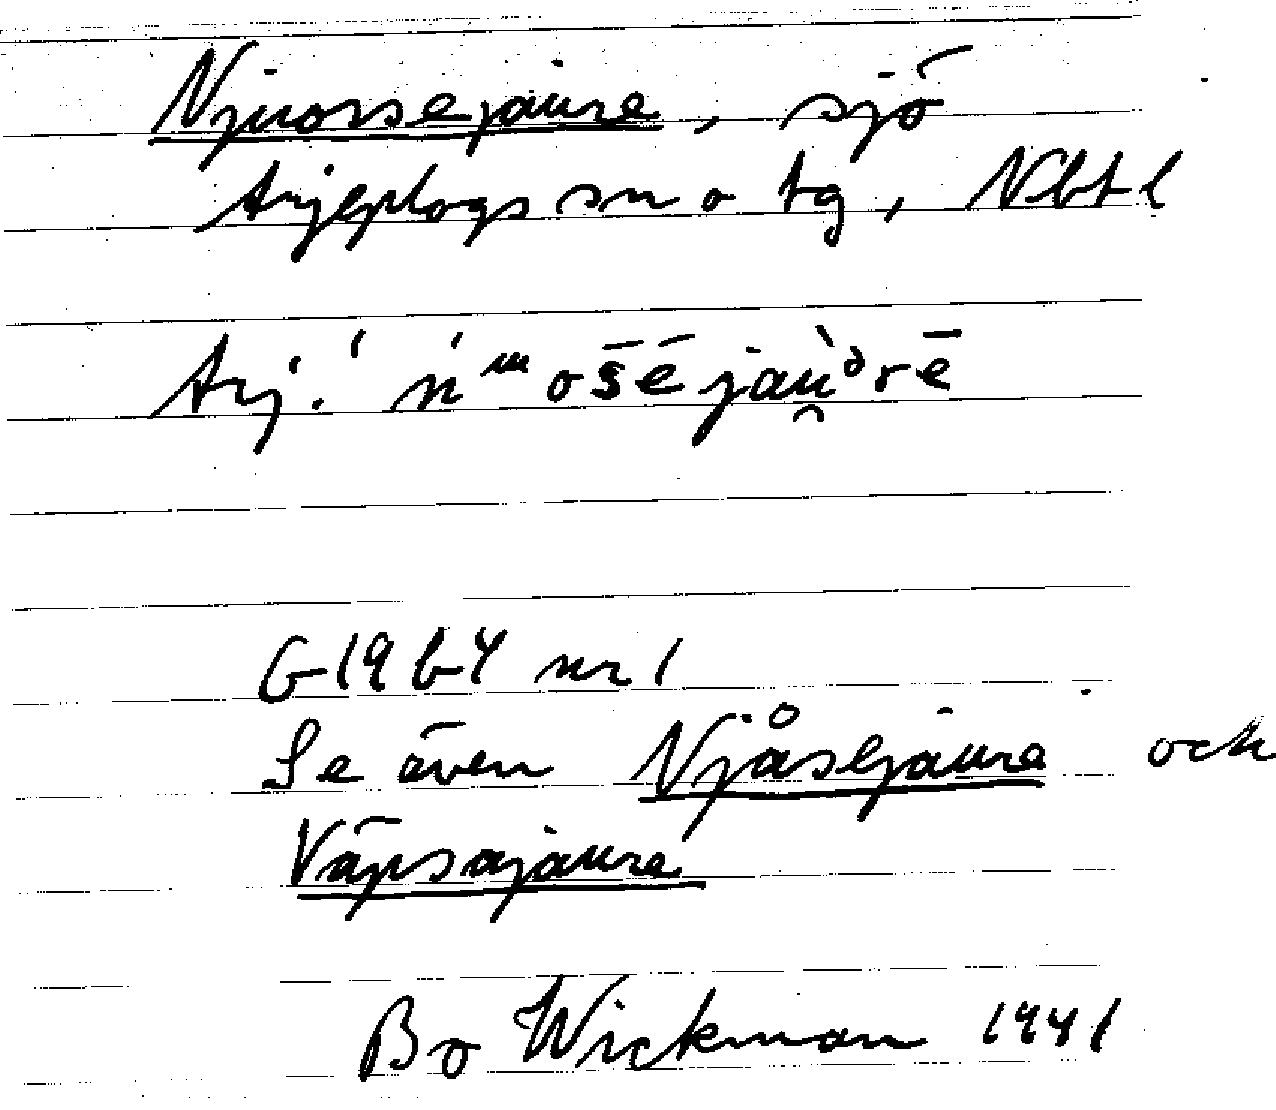 Njuorsejaure, sjö
Arjeplogs sn o tg, Nbtl
Arj.
G 19 b 4 nr 1
Se även Njåsejaure och
Vāpsajaure
Bo Wickman 1941